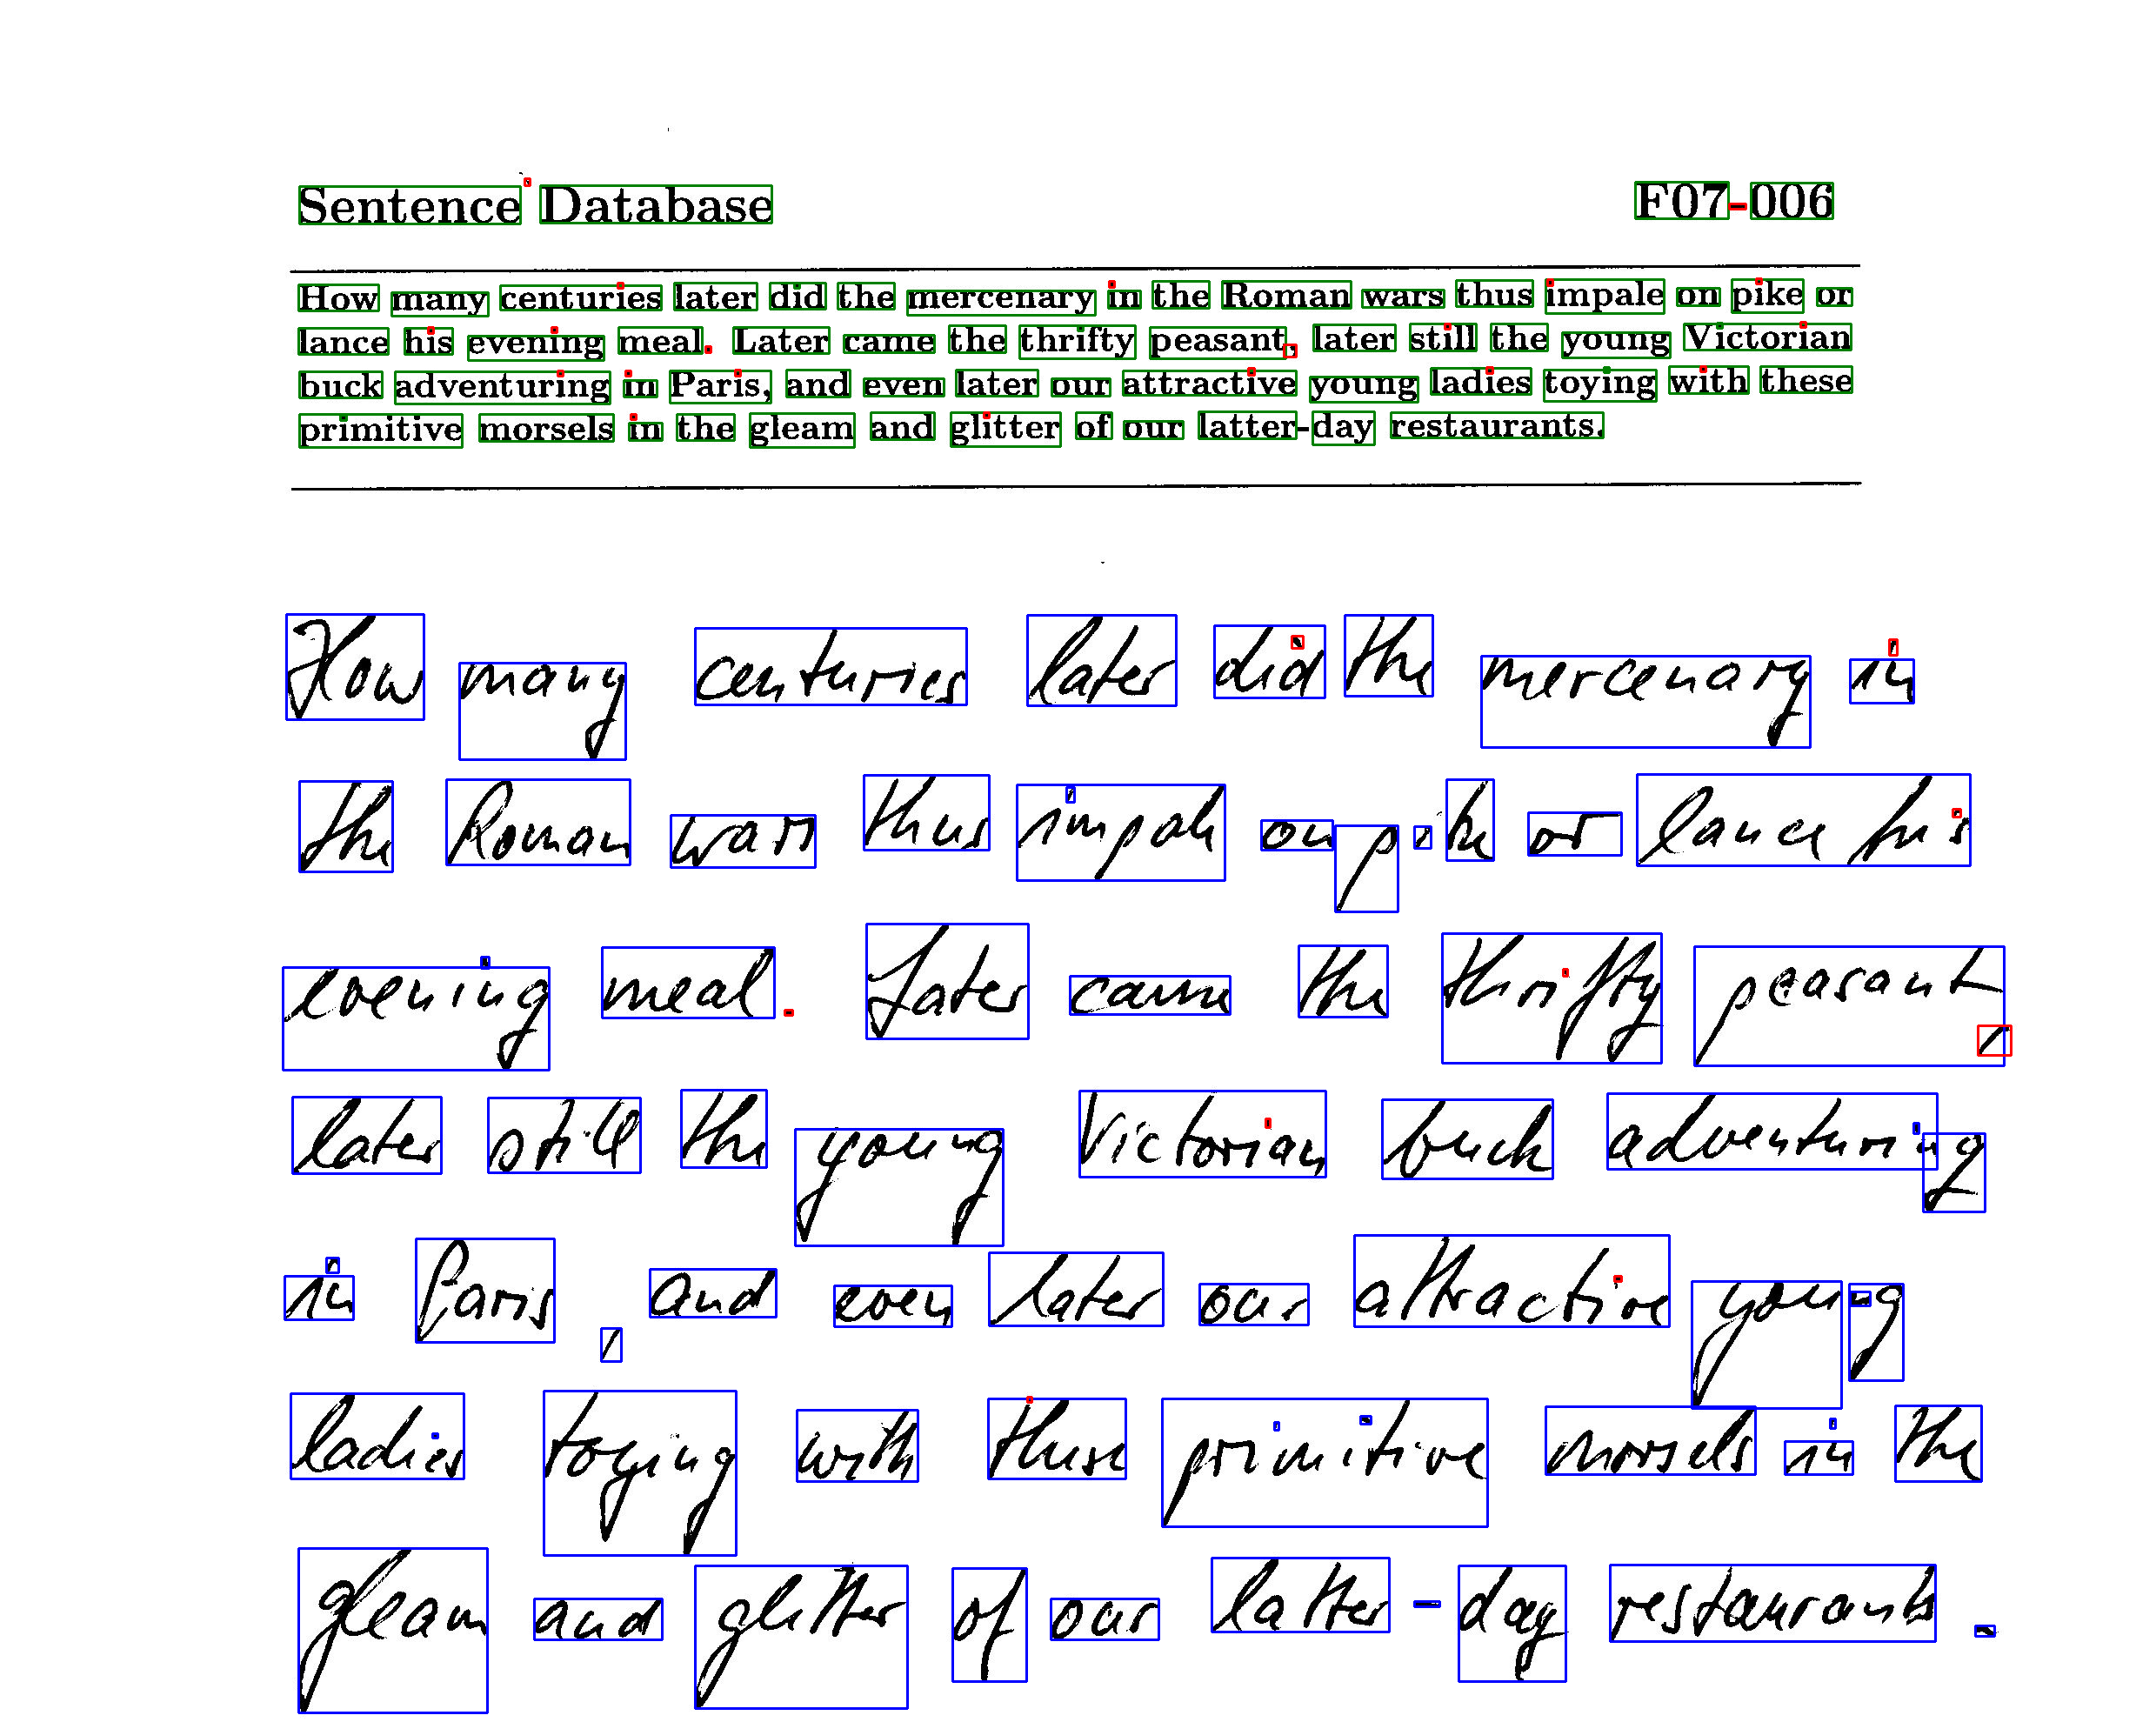 Sentence Database F07-006
How many centuries later did the mercenary in the Roman wars thus impale on pike or
lance his evening meal. Later came the thrifty peasant, later still the young Victorian
buck adventuring in Paris, and even later our attractive young ladies toying with these
primitive morsels in the gleam and glitter of our latter-day restaurants.
How many centuries later did the mercenary in
the Roman wars thus impale on pike or lance his
evening meal. Later came the thrifty peasant,
later still the young Victorian buck adventuring
in Paris, and even later our attractive young
ladies toying with these primitive morsels in the
gleam and glitter of our latter-day restaurants.